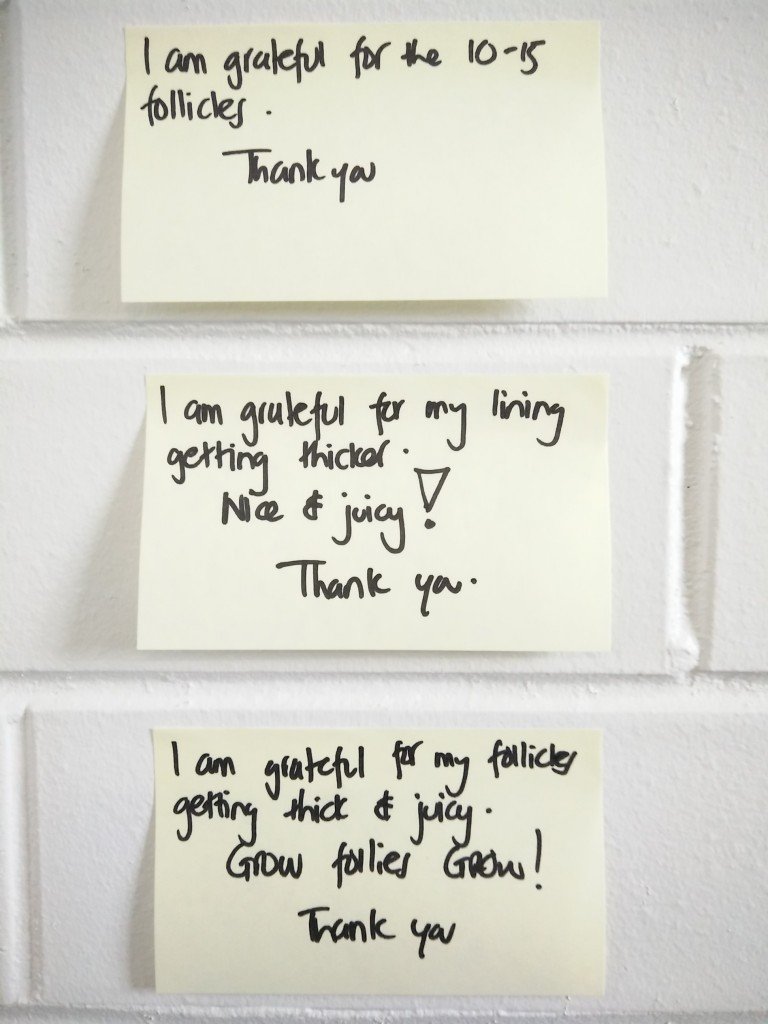 I am grateful for the 10-15
follicles.
Thank you
I am grateful for my lining
getting thicker.
Nice & juicy!
Thank you.
I am grateful for my follicles
getting thick & juicy.
Grow follies Grow!
Thank you